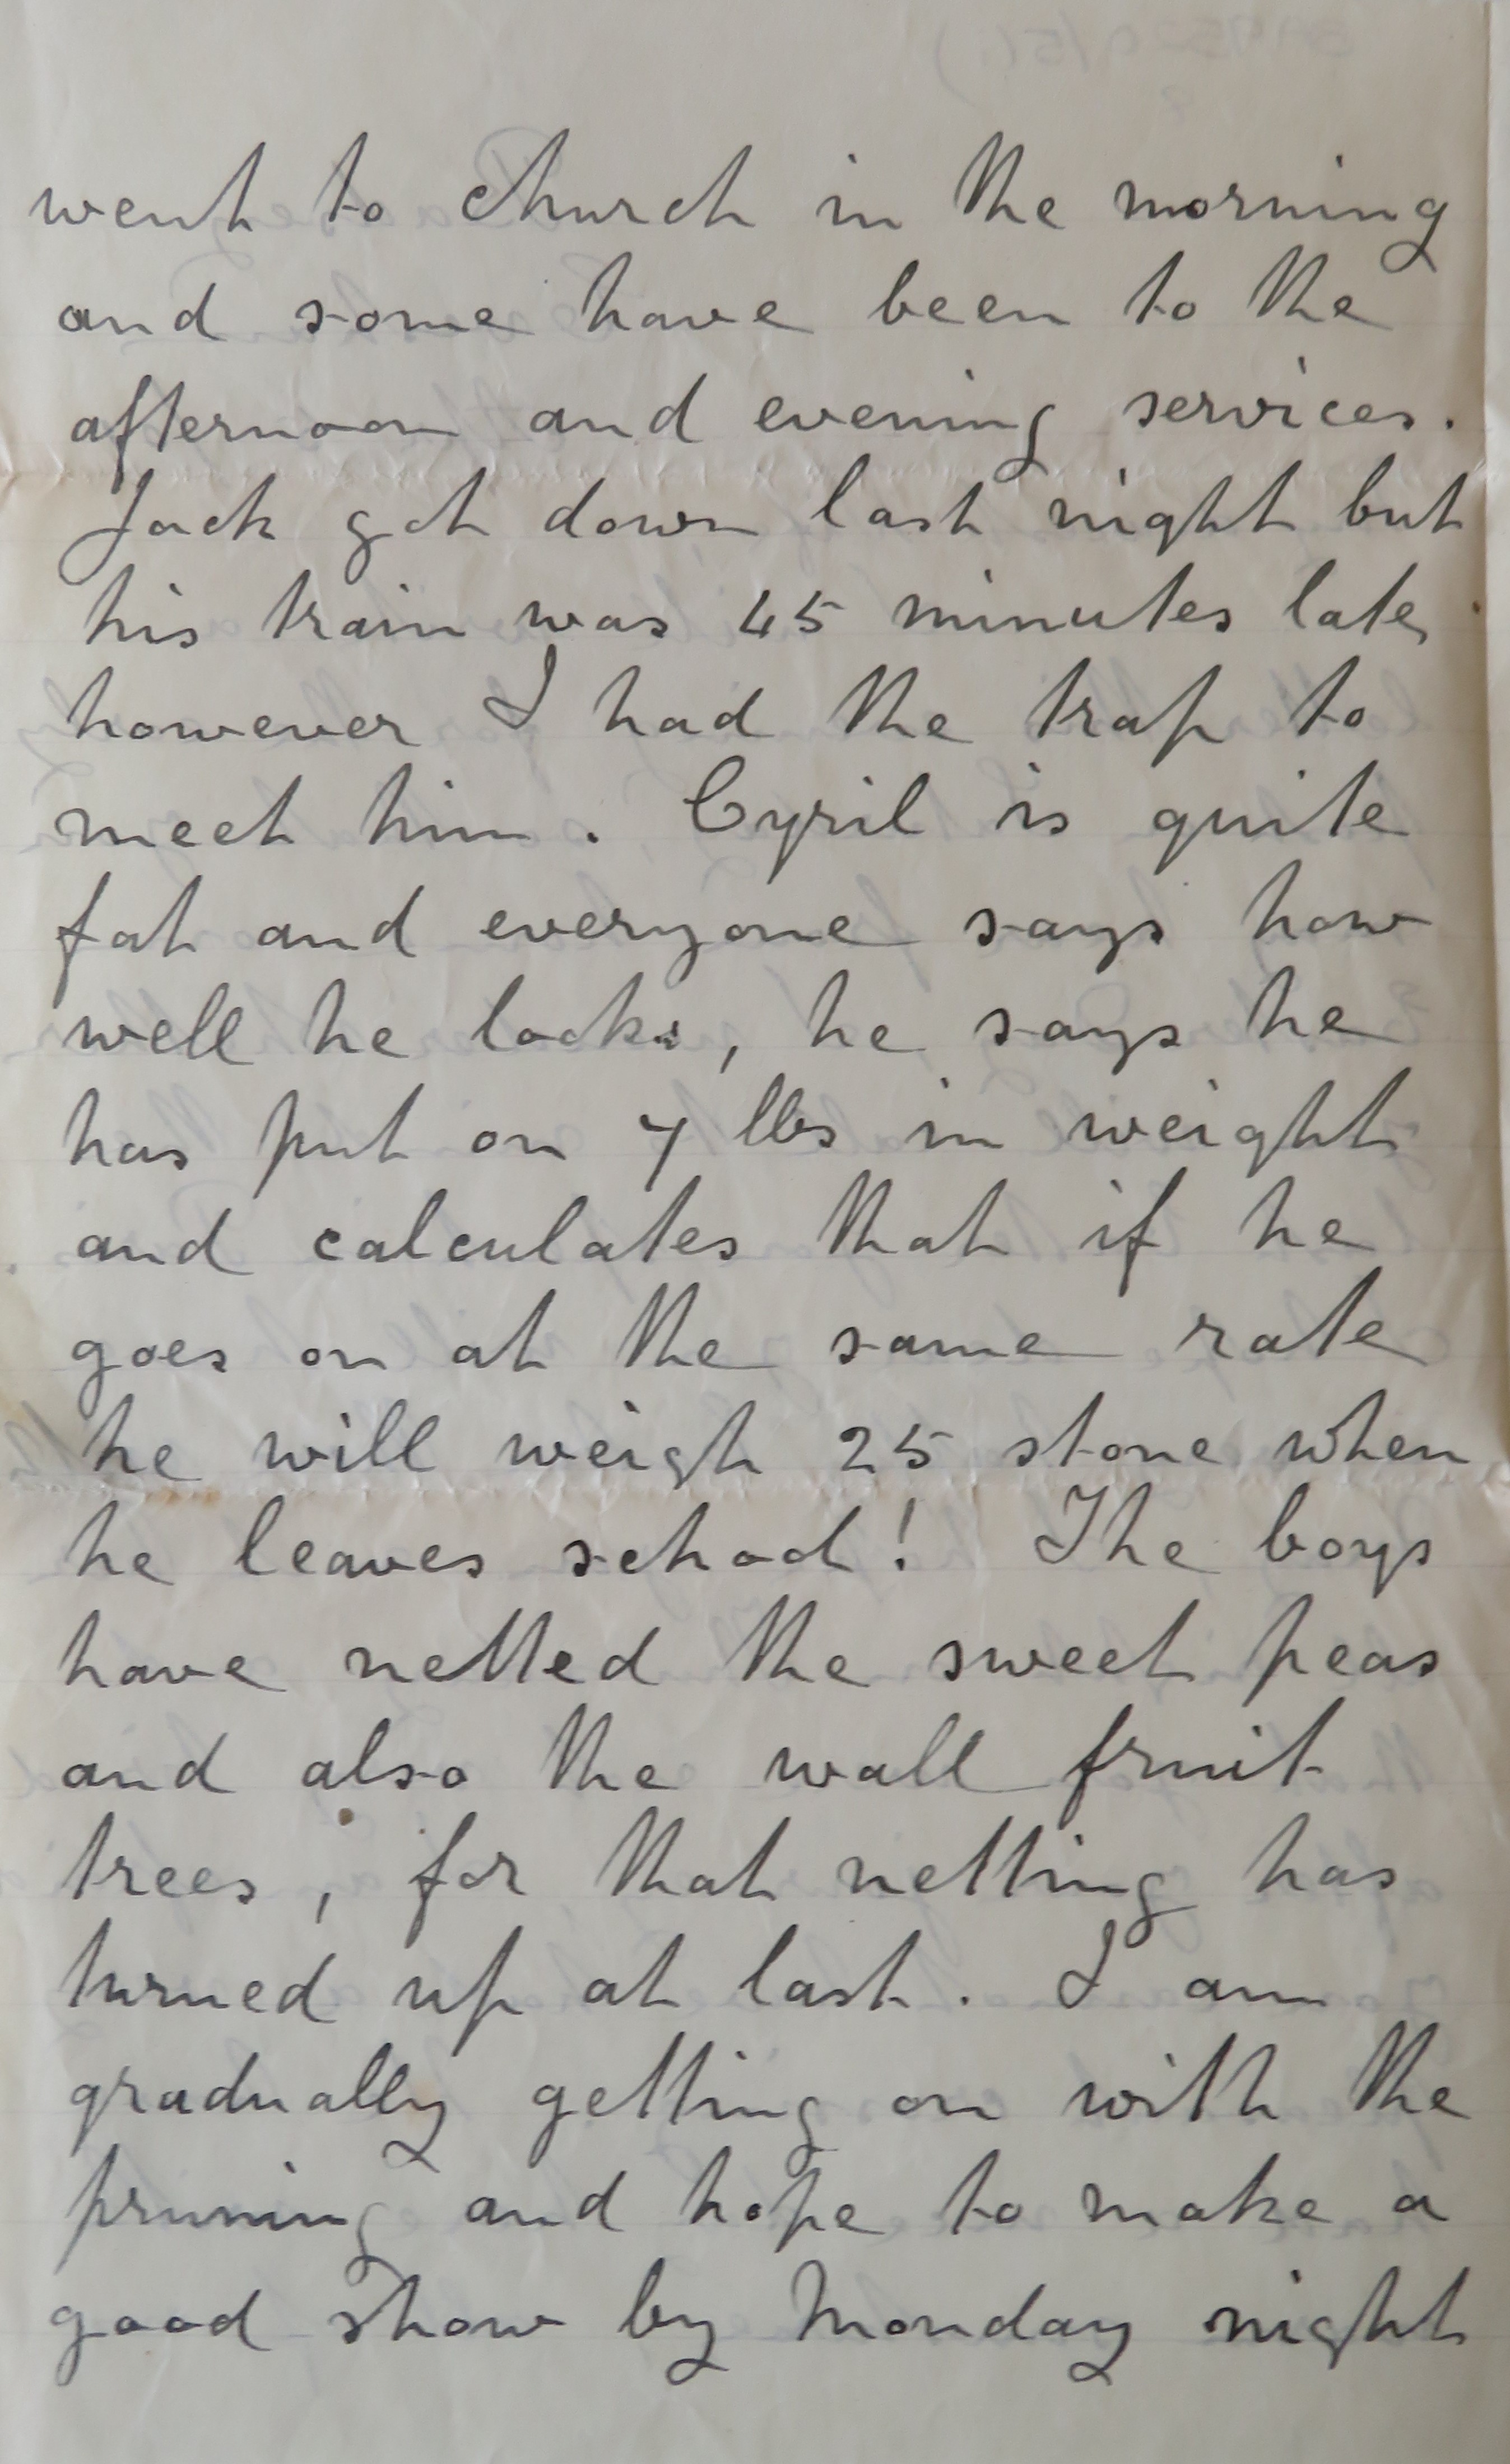 went to church in the morning
and some have been to the
afternoon and evening services.
Jack got down last night but
his train was 45 minutes late,
however I had the trap to
meet him. Cyril is quite
fat and everyone says how
well he looks, he says he
has put on 7 lbs in weight
and calculates that if he
goes on at the same rate
he will weigh 25 stone when
he leaves school! The boys
have netted the sweet peas
and also the wall fruit
trees, for that netting has
turned up at last. I am
gradually getting on with the
pruning and hope to make a
good show by Monday night